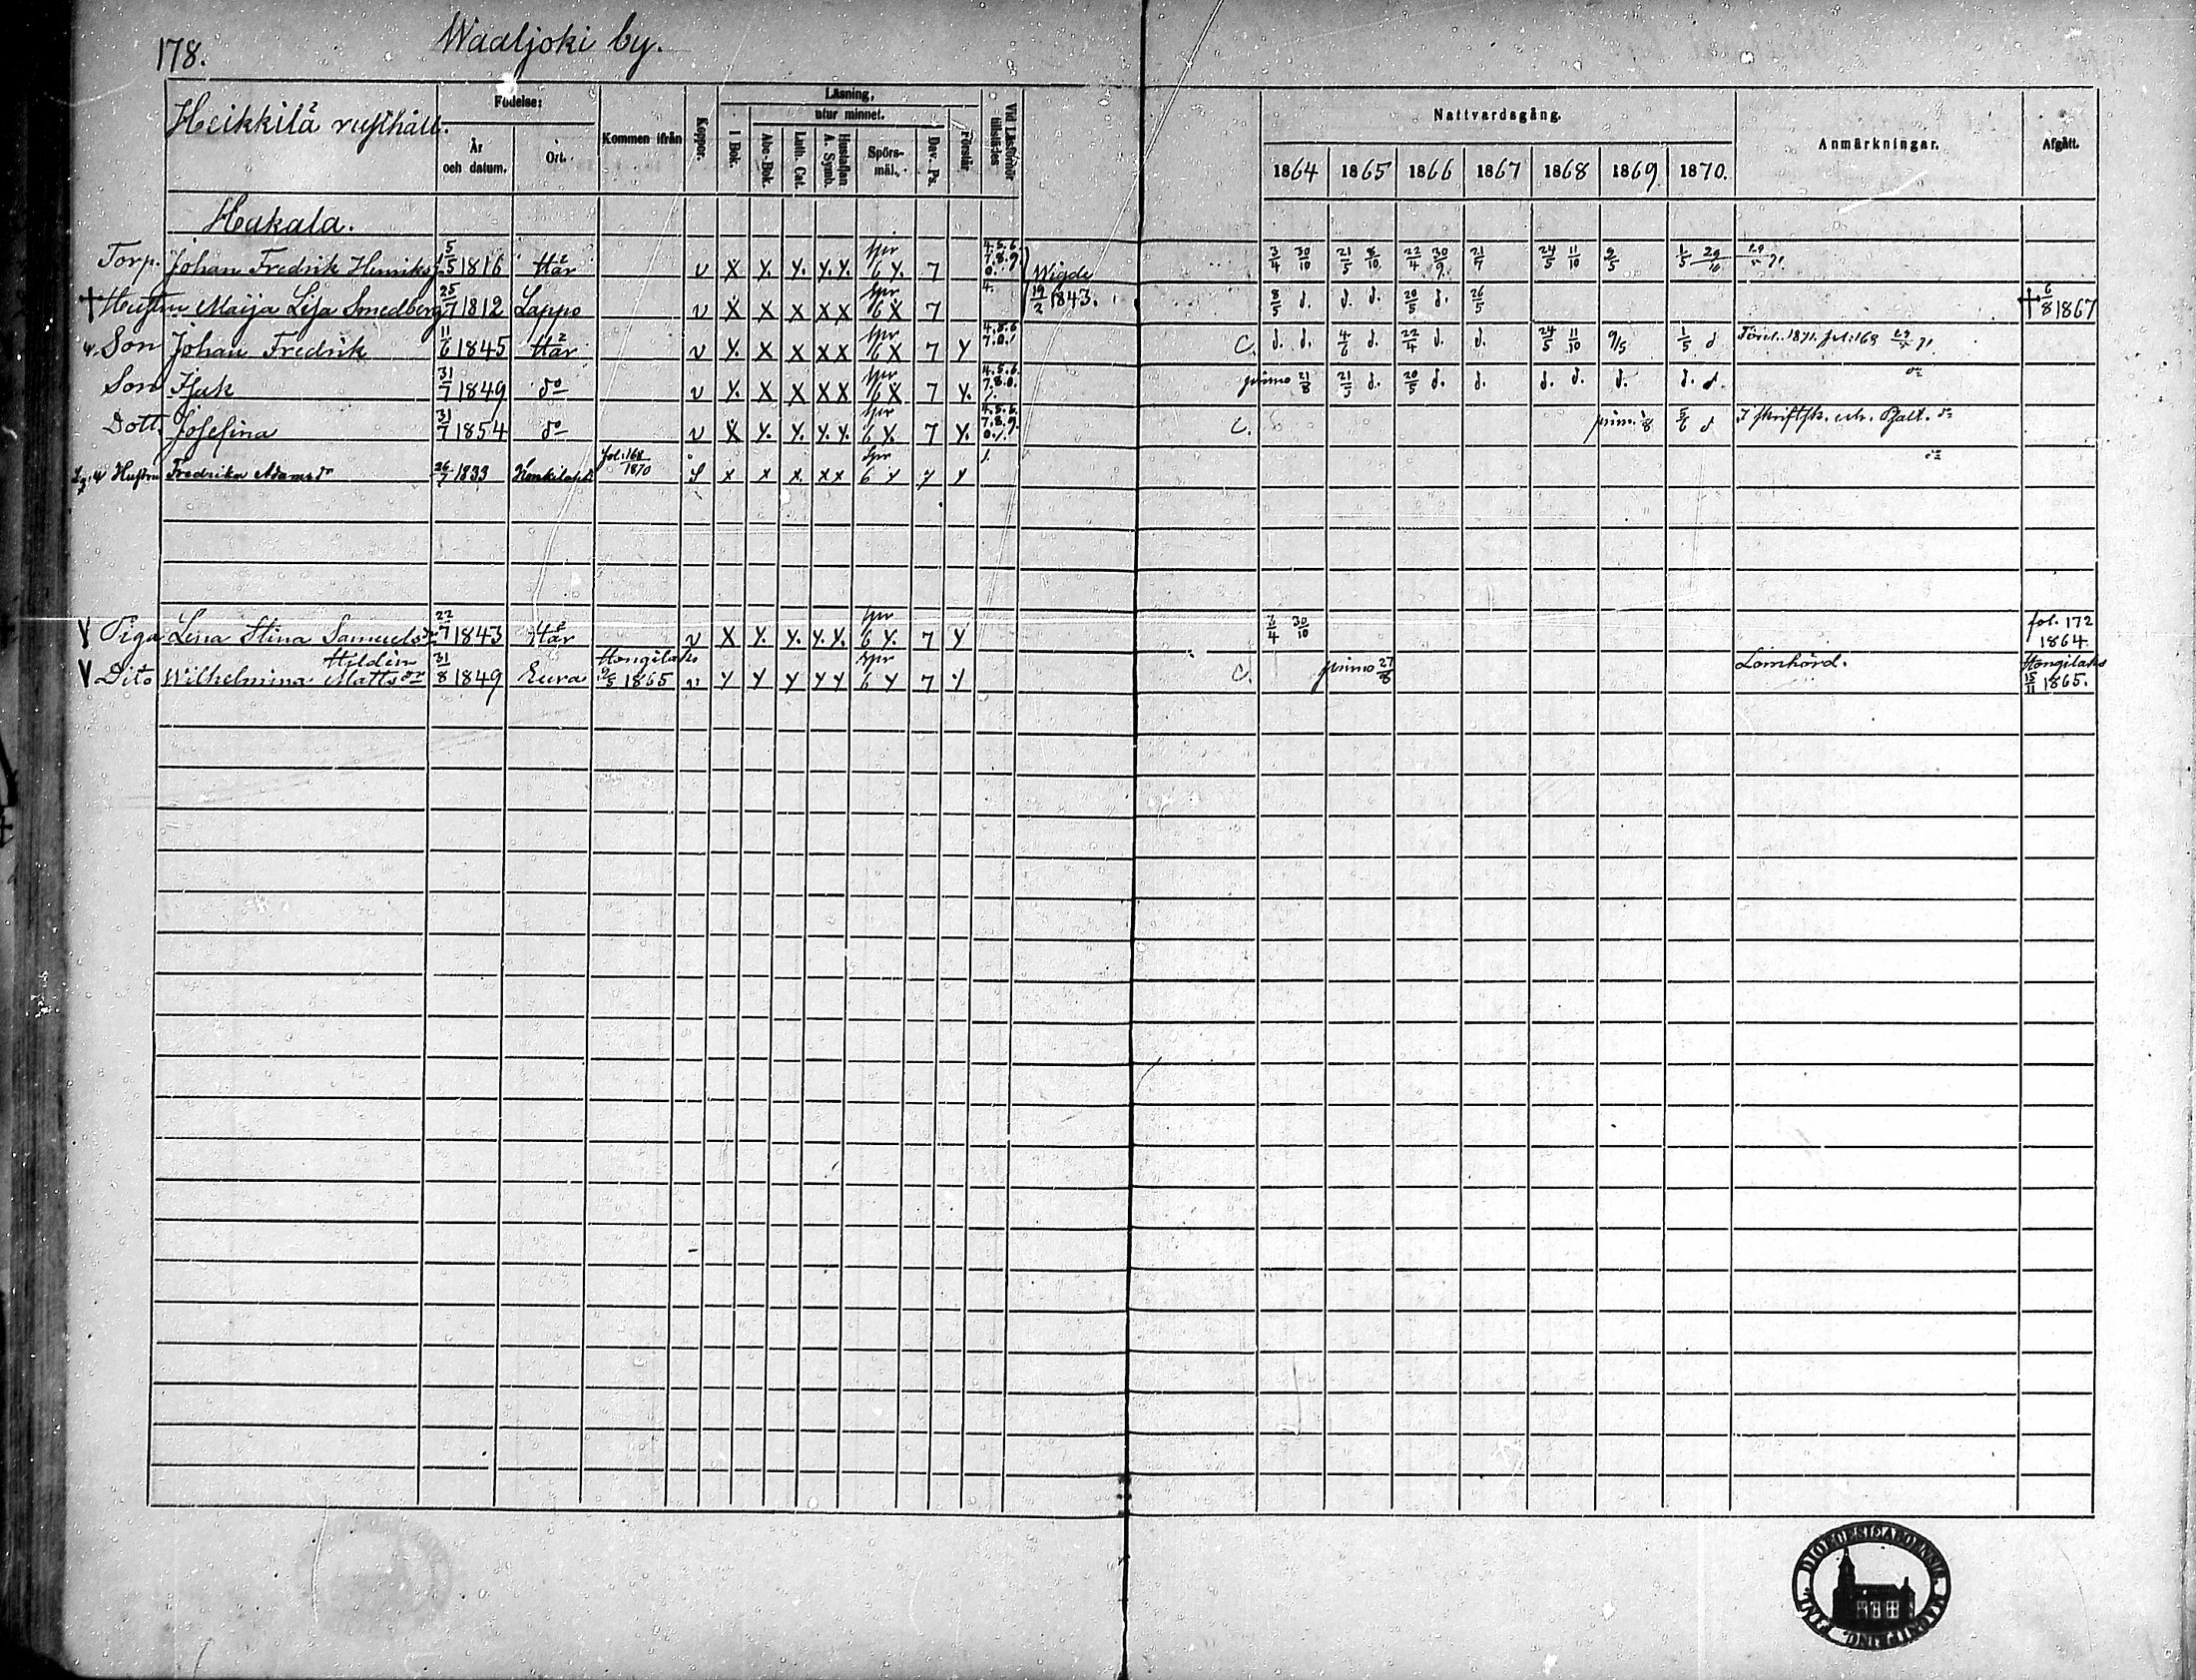 178.
Waaljoki by.
Heikkilä rusthåll.
Födelse:
År och datum.
Ort.
Kommen ifrån
Koppor.
Läsning,
utur minnet.
I Bok.
Abc-Bok.
Luth. Cat.
Hustaflan A. Symb.
Spörs-mål.
Dav. Ps.
Förstår.
Vid Läsförhör tillstädes
Nattvardsgång.
1864 1865 1866 1867 1868 1869 1870.
Anmärkningar.
Afgått.
Hakala.
Torp. Johan Fredrik Henriks 5/5 1816 Här v X y. y. y. y. Spr 6 y. 7 4.5.6. 7.8.9. 0. Wigde 3/4 30/10 21/5 8/10 22/4 30/9 21/7 24/5 11/10 9/5 1/5 29/10
† Hustru Maija Lisa Smedberg 25/7 1812 Lappo v X X X X X Spr 6 X 7 4. 19/2 1843. 8/5 d. d. d. 20/5 d. 26/5 † 6/8 1867
Son Johan Fredrik 11/6 1845 Här v y. X X X X Spr 6 X 7 y 4.5.6 7.0. C. d. d. 4/6 d. 22/4 d. d. 24/5 11/10 9/5 1/5 d fol. 168
Son Isak 31/7 1849 do v y. X X X X Spr 6 X 7 y. 4.5.6. 7.8.0. primo 21/8 21/5 d. 20/5 d. d. d. d. d. d. d.
Dott. Josefina 31/7 1854 do v X y. y. y. y. Spr 6 y. 7 y. 4.5.6. 7.8.9. C. 5/6 d
Hustru Fredrika Adamsdr 26/7 1833 Honkilaks fol. 168 1870 S x x x x x Spr 6 y y y
Piga Lena Stina Samuelsdr 22/7 1843 Här v X y. y. y. y. Spr 6 y. 7 y 3/4 30/10 fol. 172 1864
Hildén
Dito Wilhelmina Mattsdr 31/8 1849 Eura Hongilaks 1865 v y y y y y Spr 6 y 7 y C. primo 27/8 Lomhörd. Hongilaks 15/11 1865.